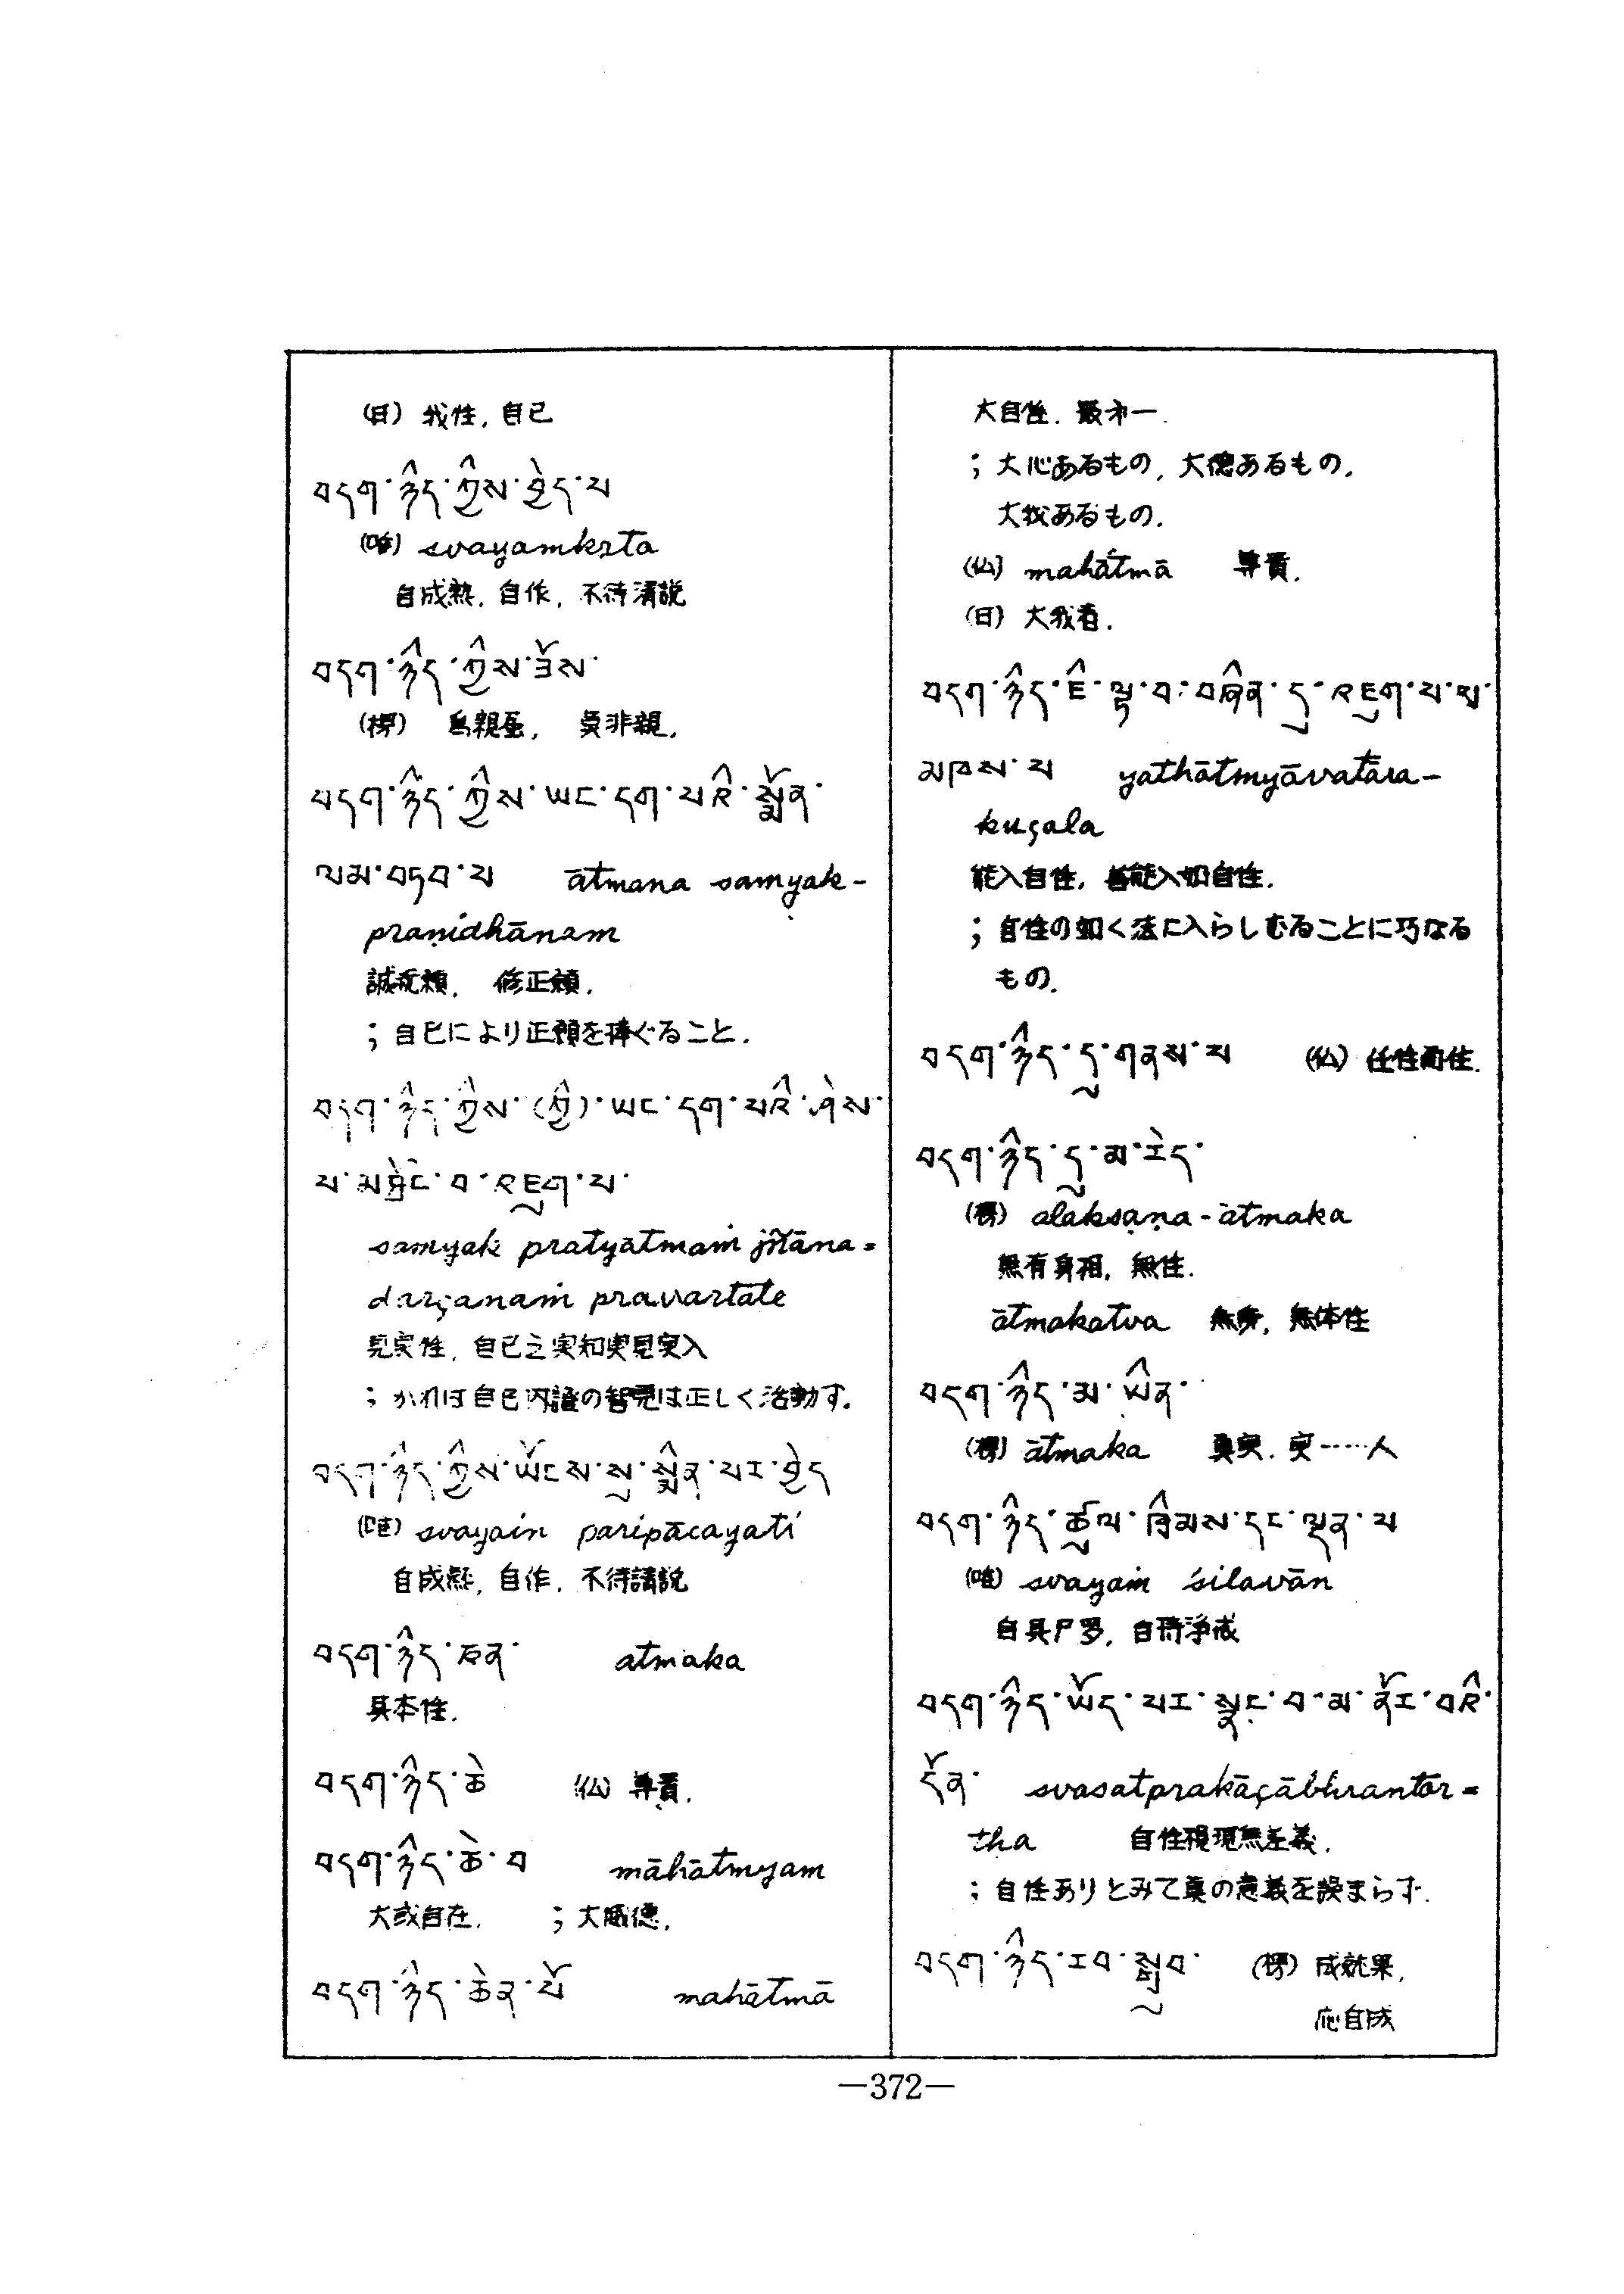 (日) 我性, 自己
བདག་ཉིད་ཀྱིས་བྱེད་པ
(唯) svayamkṛta
自成熟, 自作, 不待請説
བདག་ཉིད་ཀྱིས་ངོས་
(楞)
བདག་ཉིད་ཀྱིས་ཡང་དག་པའི་སྨོན་
ལམ་བཏབ་པ ātmana samyak-
praṇidhānam
修正願.
; 自己により正願を捧ぐること.
བདག་ཉིད་ཀྱིས་(ཀྱི)་ཡང་དག་པའི་ཤེས་
པ་མཐོང་བ་འཇུག་པ་
samyak pratyātmaṁ jñāna=
darçanaṁ pravartate
見実性, 自己之実知実見実入
; かれは自己内證の智見は正しく活動す.
བདག་ཉིད་ཀྱིས་ཡོངས་སུ་སྨིན་པར་བྱེད
(唯) svayaṁ paripācayati
自成熟, 自作, 不待請説
བདག་ཉིད་ཅན་ atmaka
具本性.
བདག་ཉིད་ཆེ (仏) 尊貴.
བདག་ཉིད་ཆེ་བ māhātmyam
大或自在. ; 大威徳.
བདག་ཉིད་ཆེན་པོ mahātmā
大自性. 最才一.
; 大心あるもの, 大徳あるもの.
大我あるもの.
(仏) mahātmā 尊貴.
(日) 大我者.
བདག་ཉིད་ཇི་ལྟ་བ་བཞིན་དུ་འཇུག་པ་ལ་
མཁས་པ yathātmyāvatāra-
kuçala
能入自性, 善能入如自性.
; 自性の如く法に入らしむることに巧なる
もの.
བདག་ཉིད་དུ་གནས་པ (仏) 任性而住.
བདག་ཉིད་དུ་མ་ཟེད་
(楞) alakṣaṇa-ātmaka
無有身相, 無性.
ātmakatva 無身, 無体性
བདག་ཉིད་མ་ཡིན་
(楞) ātmaka 真実. 実……人
བདག་ཉིད་ཚུལ་ཁྲིམས་དང་ལྡན་པ
(唯) svayaṁ śilavān
自具尸羅, 自持浄戒
བདག་ཉིད་ཡོད་པར་སྣང་བ་མ་ནོར་བའི་
དོན་ svasatprakāçābhrantār=
tha 自性現無差義.
; 自性ありとみて真の意義を誤まらず.
བདག་ཉིད་རབ་སྒྲུབ་ (楞) 成就果,
応自成
—372—